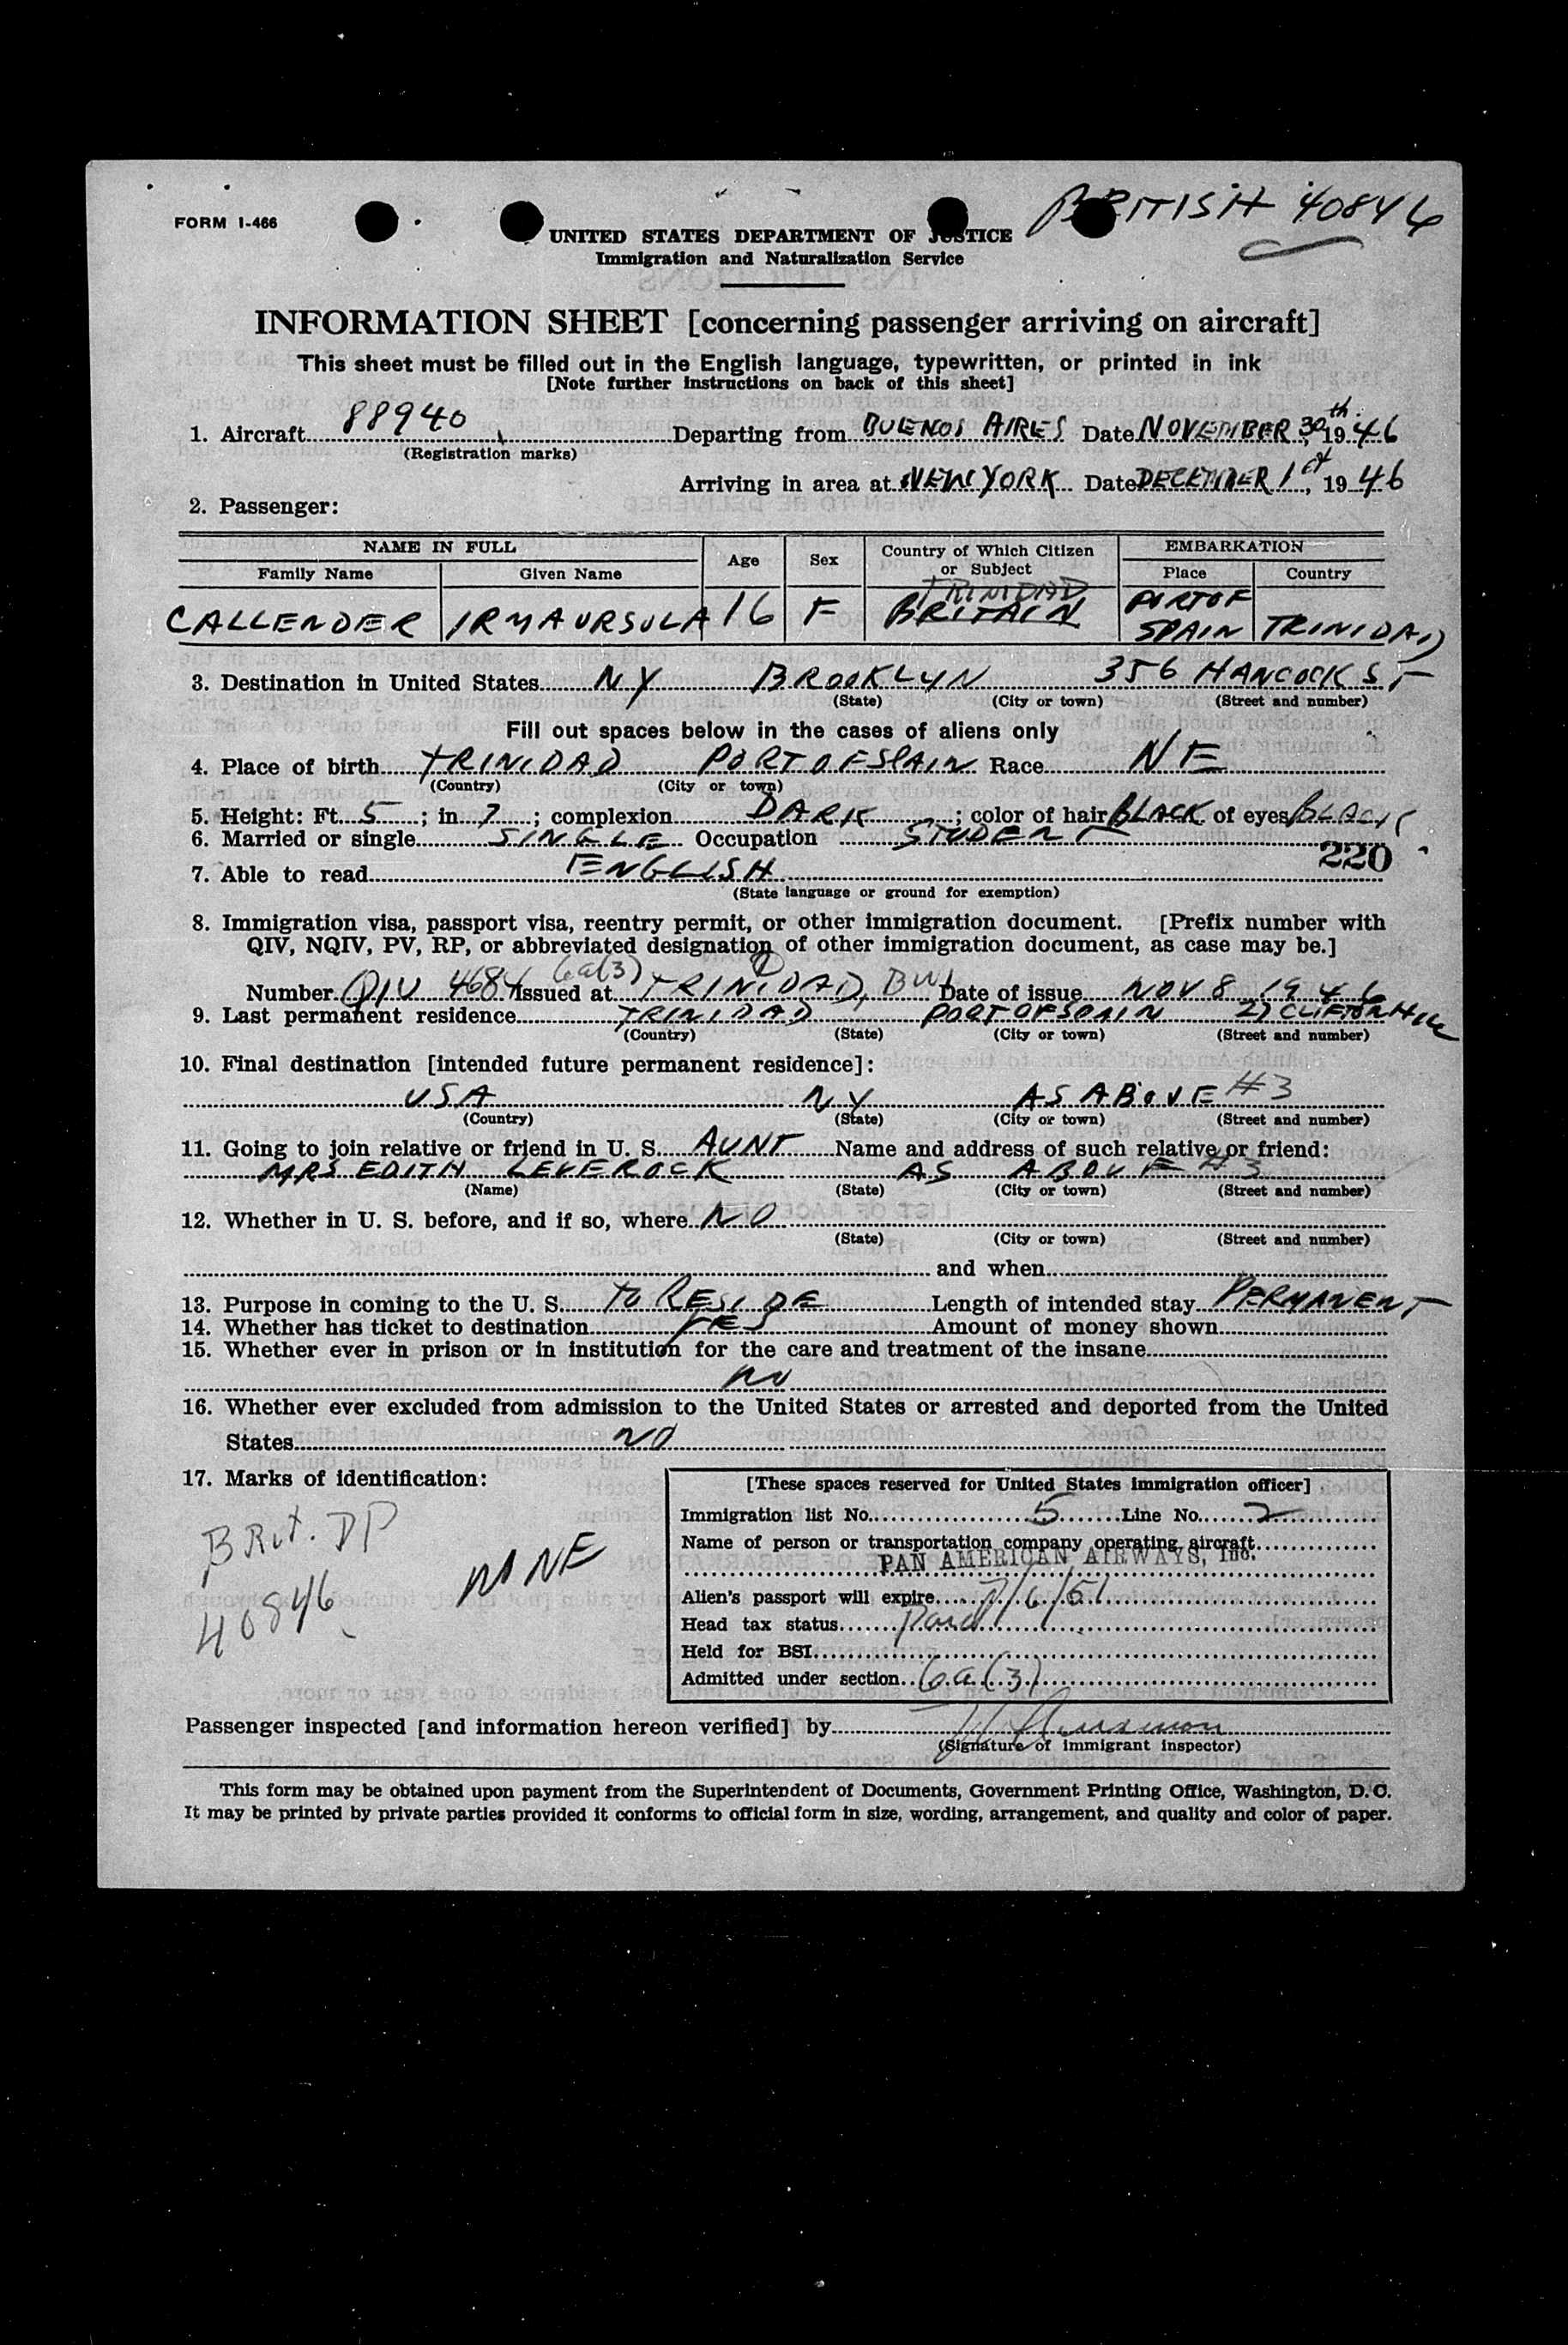 FORM I-466
BRITISH 40846
UNITED STATES DEPARTMENT OF JUSTICE
Immigration and Naturalization Service
INFORMATION SHEET [concerning passenger arriving on aircraft]
This sheet must be filled out in the English language, typewritten, or printed in ink
[Note further instructions on back of this sheet]
1. Aircraft 88940 Departing from BUENOS AIRES Date NOVEMBER 30th, 1946
(Registration marks)
Arriving in area at NEW YORK Date DECEMBER 1st, 1946
2. Passenger:
NAME IN FULL Age Sex Country of Which Citizen or Subject EMBARKATION
Family Name Given Name Place Country
TRINIDAD
CALLENDER IRMA URSULA 16 F BRITAIN PORT OF SPAIN TRINIDAD
3. Destination in United States NY BROOKLYN 356 HANCOCK ST
(State) (City or town) (Street and number)
Fill out spaces below in the cases of aliens only
4. Place of birth TRINIDAD PORT OF SPAIN Race NE
(Country) (City or town)
5. Height: Ft. 5; in. 7; complexion DARK; color of hair BLACK of eyes BLACK
6. Married or single SINGLE Occupation STUDENT
220
7. Able to read ENGLISH
(State language or ground for exemption)
8. Immigration visa, passport visa, reentry permit, or other immigration document. [Prefix number with
QIV, NQIV, PV, RP, or abbreviated designation of other immigration document, as case may be.]
6a(3)
Number QIV 4684 Issued at TRINIDAD, BWI Date of issue NOV 8 1946
9. Last permanent residence TRINIDAD PORT OF SPAIN 27 CLIFTON HILL
(Country) (State) (City or town) (Street and number)
10. Final destination [intended future permanent residence]:
USA NY AS ABOVE #3
(Country) (State) (City or town) (Street and number)
11. Going to join relative or friend in U. S. AUNT Name and address of such relative or friend:
MRS EDITH LEVEROCK AS ABOVE #3
(Name) (State) (City or town) (Street and number)
12. Whether in U. S. before, and if so, where NO
(State) (City or town) (Street and number)
and when
13. Purpose in coming to the U. S. TO RESIDE Length of intended stay PERMANENT
14. Whether has ticket to destination YES Amount of money shown
15. Whether ever in prison or in institution for the care and treatment of the insane
NO
16. Whether ever excluded from admission to the United States or arrested and deported from the United
States NO
17. Marks of identification:
Brit. PP
40846
NONE
[These spaces reserved for United States immigration officer]
Immigration list No. 5 Line No. 2
Name of person or transportation company operating aircraft
PAN AMERICAN AIRWAYS, Inc.
Alien's passport will expire 7/6/51
Head tax status Paid
Held for BSI
Admitted under section 6a(3)
Passenger inspected [and information hereon verified] by
(Signature of immigrant inspector)
This form may be obtained upon payment from the Superintendent of Documents, Government Printing Office, Washington, D. C.
It may be printed by private parties provided it conforms to official form in size, wording, arrangement, and quality and color of paper.